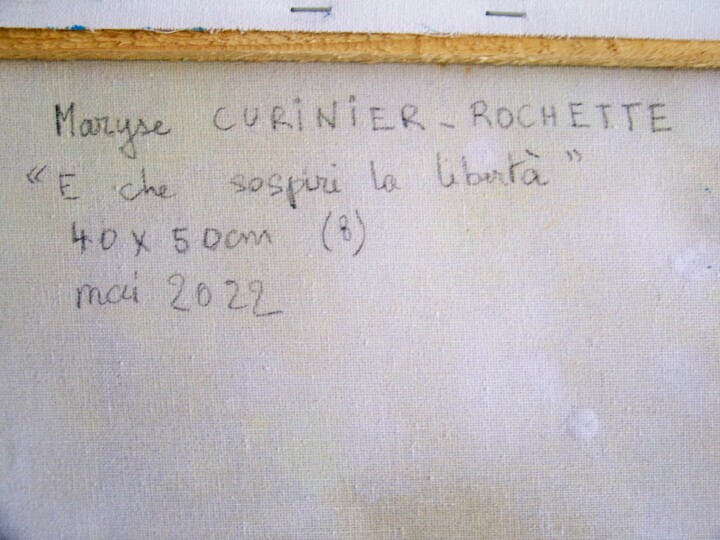 Maryse CURINIER-ROCHETTE
"E che sospiri la libertà"
40 x 50 cm (8)
mai 2022